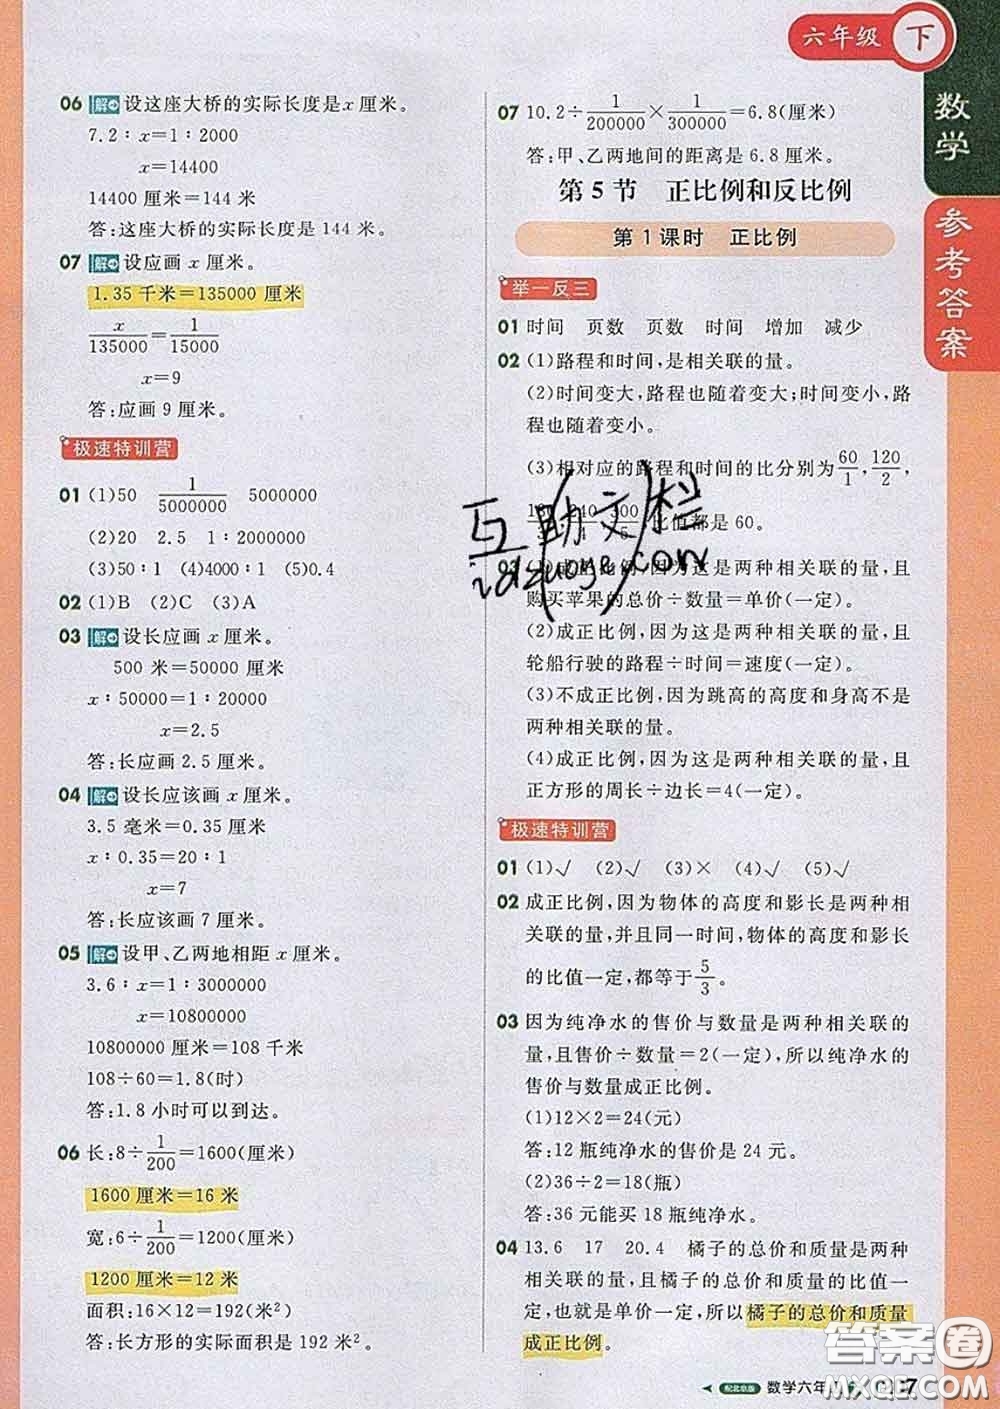 六年级 下
数学
参考答案
06 解 设这座大桥的实际长度是x厘米。
7.2∶x=1∶2000
x=14400
14400厘米=144米
答:这座大桥的实际长度是144米。
07 解 设应画x厘米。
1.35千米=135000厘米
x/135000=1/15000
x=9
答:应画9厘米。
极速特训营
01 (1)50 1/5000000 5000000
(2)20 2.5 1∶2000000
(3)50∶1 (4)4000∶1 (5)0.4
02 (1)B (2)C (3)A
03 解 设长应画x厘米。
500米=50000厘米
x∶50000=1∶20000
x=2.5
答:长应画2.5厘米。
04 解 设长应该画x厘米。
3.5毫米=0.35厘米
x∶0.35=20∶1
x=7
答:长应该画7厘米。
05 解 设甲、乙两地相距x厘米。
3.6∶x=1∶3000000
x=10800000
10800000厘米=108千米
108÷60=1.8(时)
答:1.8小时可以到达。
06 长:8÷1/200=1600(厘米)
1600厘米=16米
宽:6÷1/200=1200(厘米)
1200厘米=12米
面积:16×12=192(米²)
答:长方形的实际面积是192米²。
07 10.2÷1/200000×1/300000=6.8(厘米)
答:甲、乙两地间的距离是6.8厘米。
第5节 正比例和反比例
第1课时 正比例
举一反三
01 时间 页数 页数 时间 增加 减少
02 (1)路程和时间,是相关联的量。
(2)时间变大,路程也随着变大;时间变小,路
程也随着变小。
(3)相对应的路程和时间的比分别为60/1,120/2,
180/3,240/4,300/5 比值都是60。
03 (1)成正比例,因为这是两种相关联的量,且
购买苹果的总价÷数量=单价(一定)。
(2)成正比例,因为这是两种相关联的量,且
轮船行驶的路程÷时间=速度(一定)。
(3)不成正比例,因为跳高的高度和身高不是
两种相关联的量。
(4)成正比例,因为这是两种相关联的量,且
正方形的周长÷边长=4(一定)。
互助文栏
idzuoye.com
极速特训营
01 (1)√ (2)√ (3)× (4)√ (5)√
02 成正比例,因为物体的高度和影长是两种相
关联的量,并且同一时间,物体的高度和影长
的比值一定,都等于5/3。
03 因为纯净水的售价与数量是两种相关联的
量,且售价÷数量=2(一定),所以纯净水的
售价与数量成正比例。
(1)12×2=24(元)
答:12瓶纯净水的售价是24元。
(2)36÷2=18(瓶)
答:36元能买18瓶纯净水。
04 13.6 17 20.4 橘子的总价和质量是两种
相关联的量,且橘子的总价和质量的比值一
定,也就是单价一定,所以橘子的总价和质量
成正比例。
答案圈
配北京版 数学六年
7